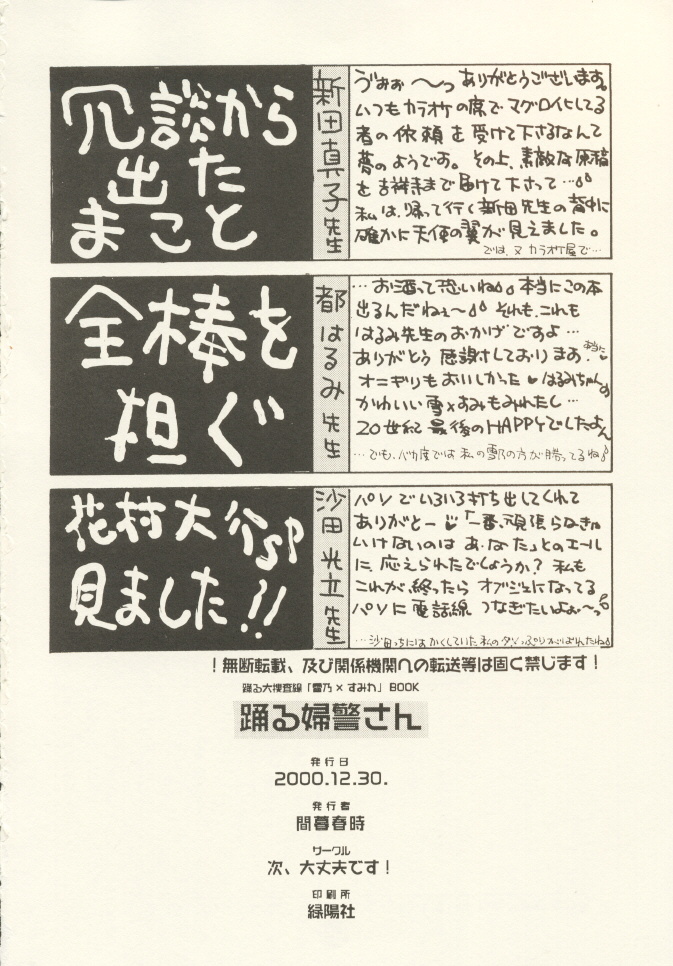 冗談から
出た
まこと
新田真子先生
ゔあぉ〜っ ありがとうございます。
いつもカラオケの席でマグロ化してる
者の依頼を受けて下さるなんて
夢のようです。その上、素敵な原稿
を吉祥寺まで届けて下さって…
私は、帰って行く新田先生の背中に
確かに天使の翼が見えました。
では、又カラオケ屋で…
全棒を
担ぐ
都はるみ先生
…お酒って恐いね 本当にこの本
出るんだねぇ〜 それも、これも
はるみ先生のおかげですよ…
ありがとう 感謝しております 本当に♥
オニギリもおいしかった♥はるみちゃんの
かわいい雪×すみもみれたし…
20世紀最後のHAPPYでしたよん
…でも、バカ度では私の雪乃の方が勝ってるね♪
花村大介SP
見ました!!
沙田光立先生
パソでいろいろ打ち出してくれて
ありがとー♥「一番、頑張らなきゃ
いけないのはあ・な・た」とのエール
に応えられたでしょうか？私も
これが、終ったらオブジェになってる
パソに電話線つなぎたいよぉ〜っ
…沙田っちにはかくしていた、私の
！無断転載、及び関係機関への転送等は固く禁じます！
踊る大捜査線「雪乃×すみれ」BOOK
踊る婦警さん
発行日
2000.12.30.
発行者
間暮春時
サークル
次、大丈夫です！
印刷所
緑陽社